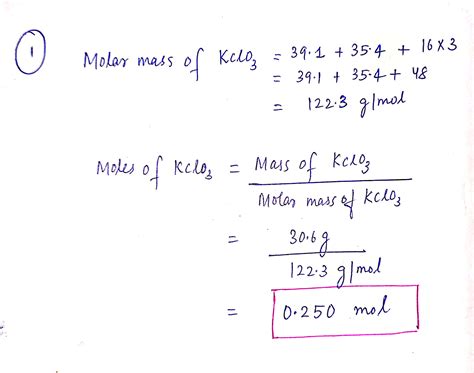 1
Molar mass of KClO3 = 39.1 + 35.4 + 16×3
= 39.1 + 35.4 + 48
= 122.3 g/mol
Moles of KClO3 = Mass of KClO3
Molar mass of KClO3
= 30.6 g
122.3 g/mol
= 0.250 mol